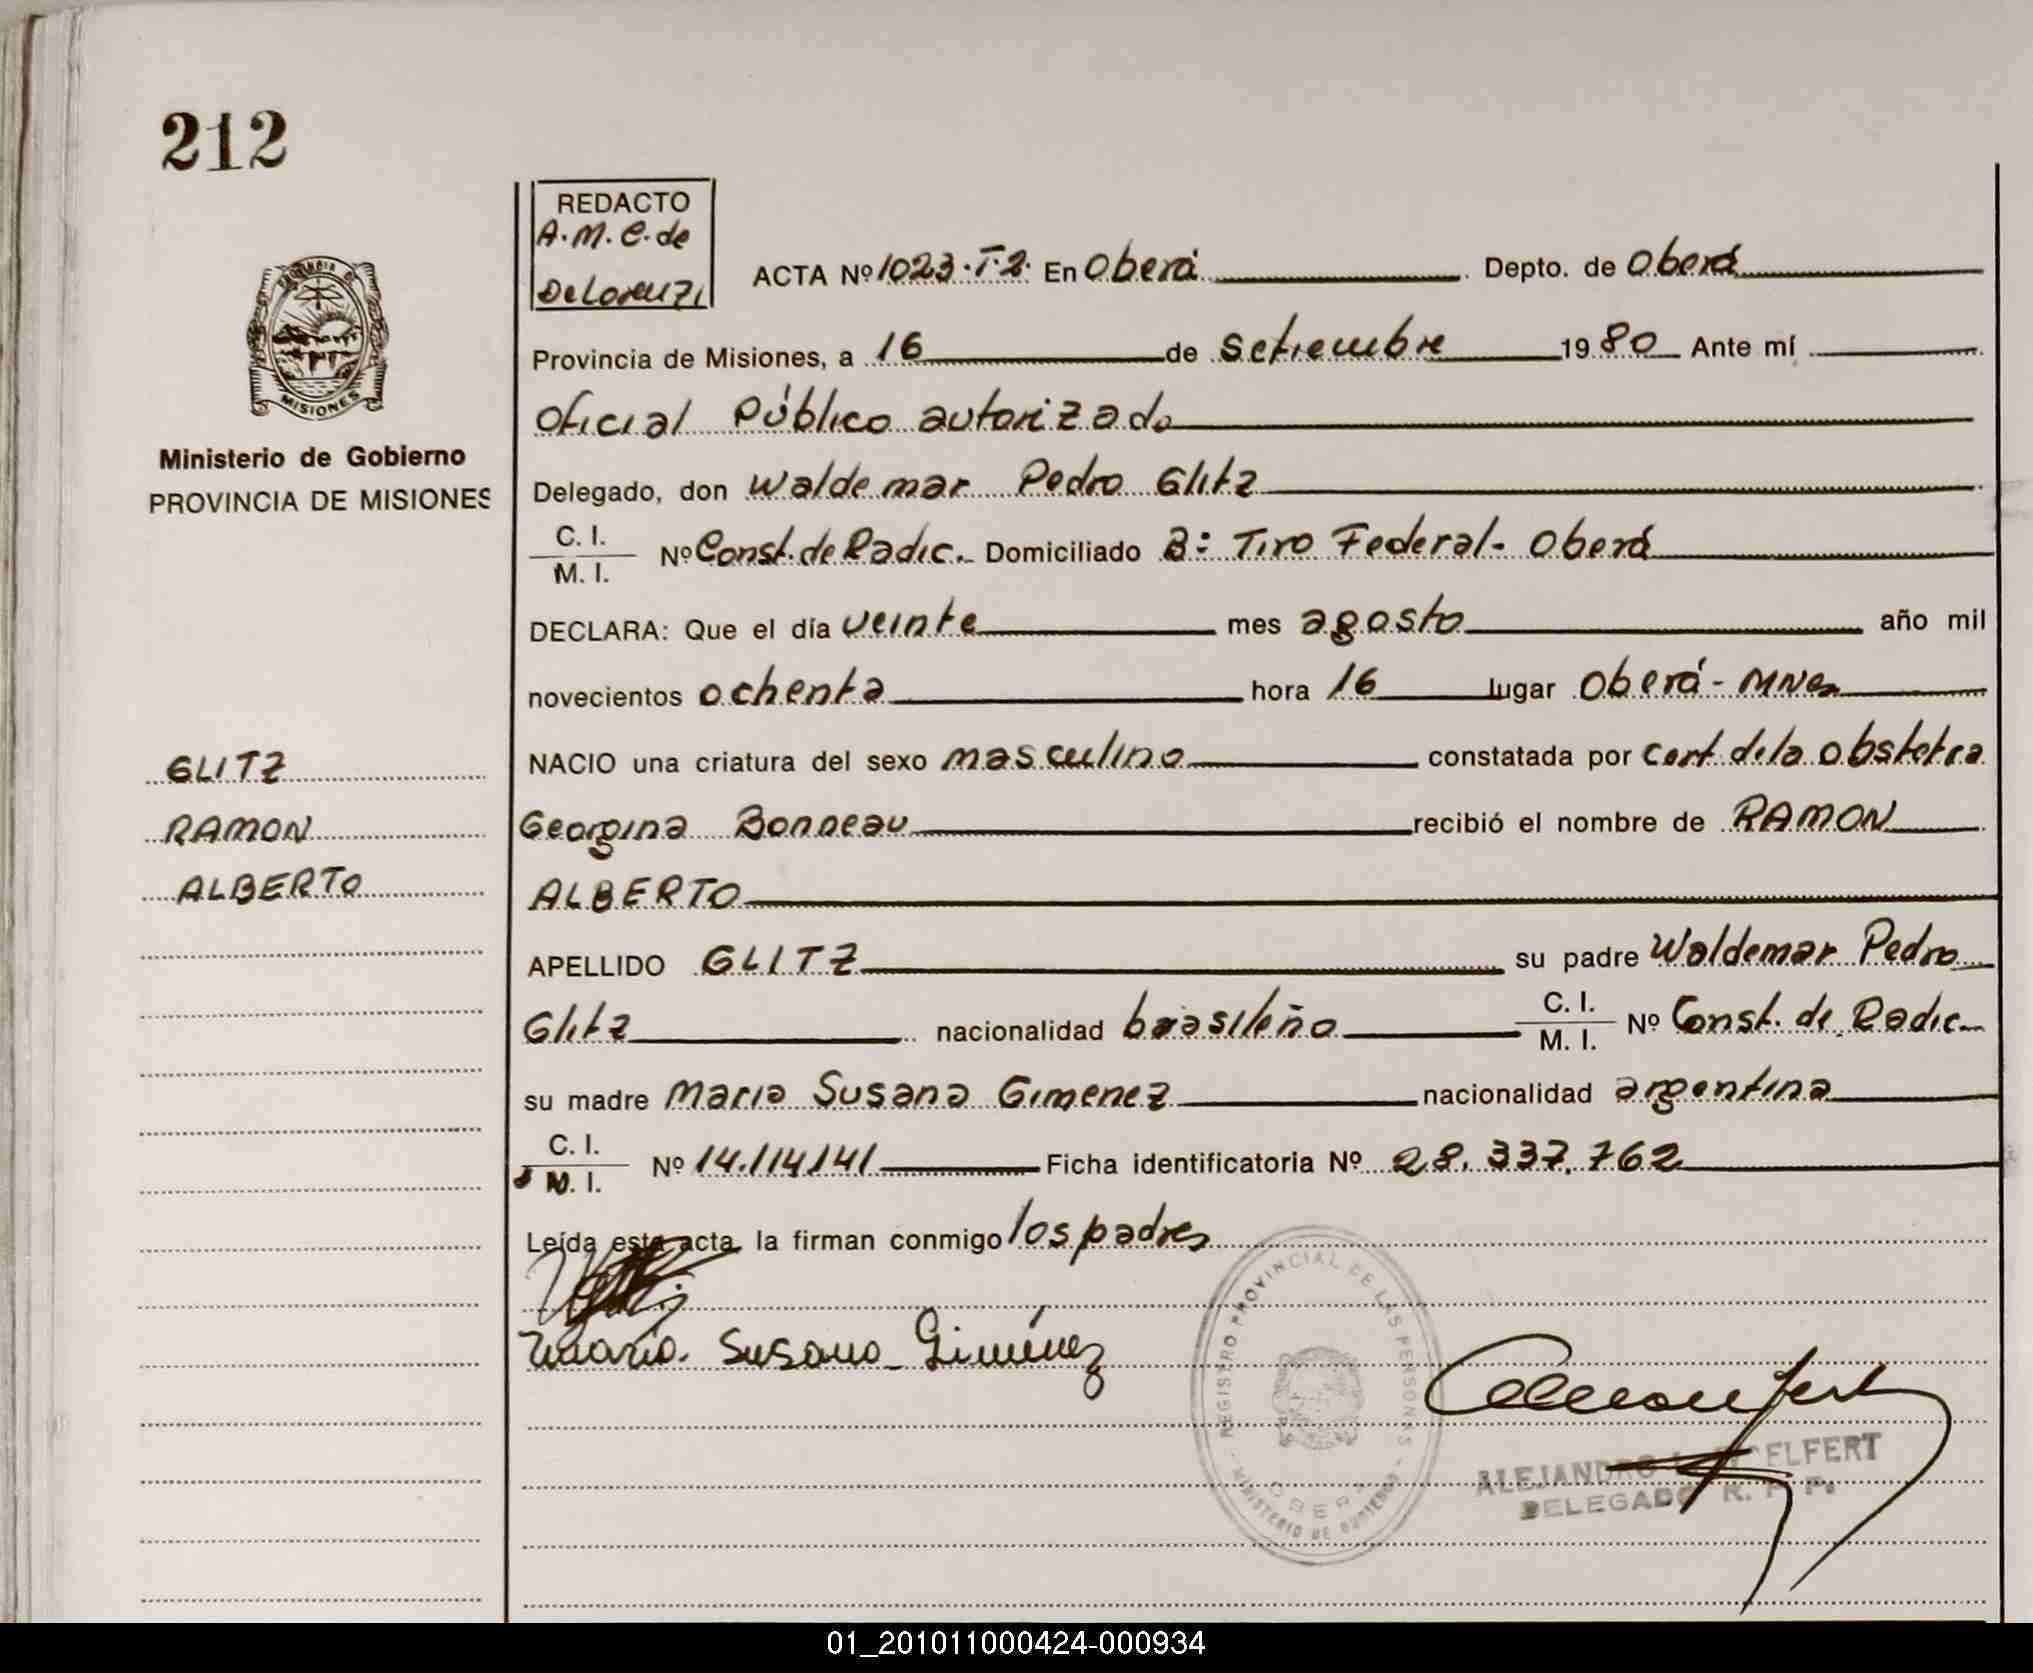 212
REDACTO
A.M.C. de
De Lorenzi
ACTA Nº 1023.T.2. En Oberá Depto. de Oberá
Provincia de Misiones, a 16 de Setiembre 1980 Ante mí
Oficial Público autorizado
Ministerio de Gobierno
PROVINCIA DE MISIONES
MISIONES
Delegado, don Waldemar Pedro Glitz
C. I.
M. I.
Nº Const. de Radic. Domiciliado B: Tiro Federal - Oberá
DECLARA: Que el día veinte mes agosto año mil
novecientos ochenta hora 16 lugar Oberá - MNes
NACIO una criatura del sexo masculino constatada por cert. de la obstetra
Georgina Bonneau recibió el nombre de RAMON
ALBERTO
GLITZ
RAMON
ALBERTO
APELLIDO GLITZ su padre Waldemar Pedro
Glitz nacionalidad brasileño C. I. M. I. Nº Const. de Radic.
su madre Maria Susana Gimenez nacionalidad argentina
C. I.
M. I.
Nº 14.114.141 Ficha identificatoria Nº 28.337.762
Leída esta acta la firman conmigo los padres
Maria Susana Giménez
REGISTRO PROVINCIAL DE LAS PERSONAS - MINISTERIO DE GOBIERNO -
OBERA
ALEJANDRO
DELEGADO R. P. P.
01_201011000424-000934